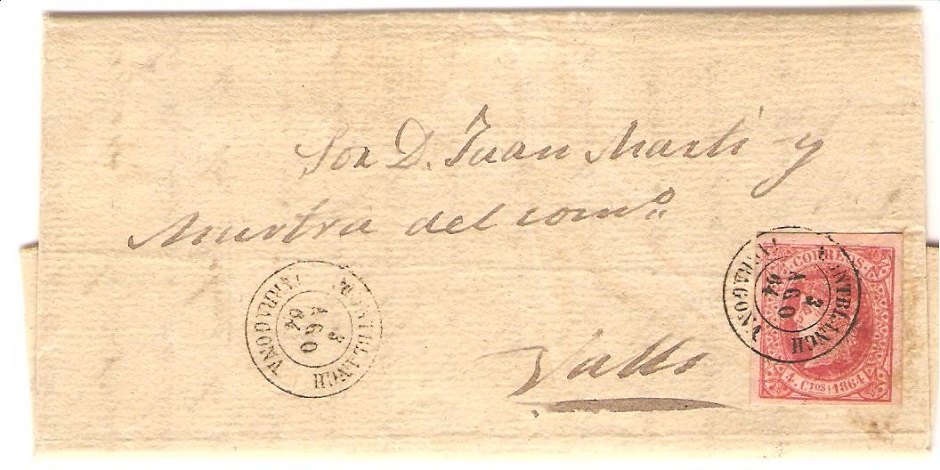 Sor D. Juan Martí y
Mustra del comº
Valls
MONTBLANCH
3
AGO
64
TARRAGONA
MONTBLANCH
3
AGO
64
TARRAGONA
CORREOS
4. CTOS 1864